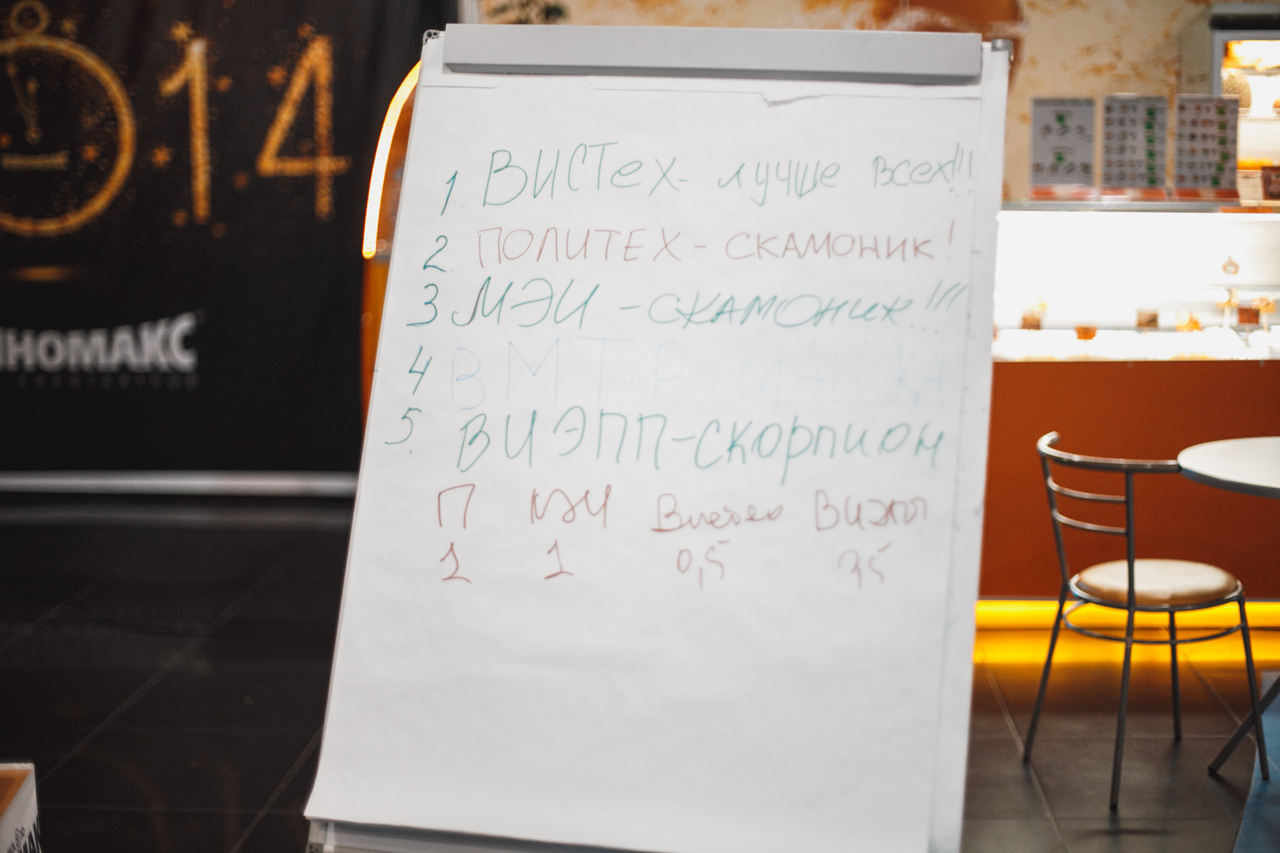 14
НОМАКС
1. ВИСТех - лучше всех!!!
2. ПОЛИТЕХ - СКАМОНИК!
3. МЭИ - СКАМОНИК!!!
4 ВМТ-РОМАШКА
5. ВИЭПП - Скорпион
П МЭИ Вистех ВИЭПП
1 1 0,5